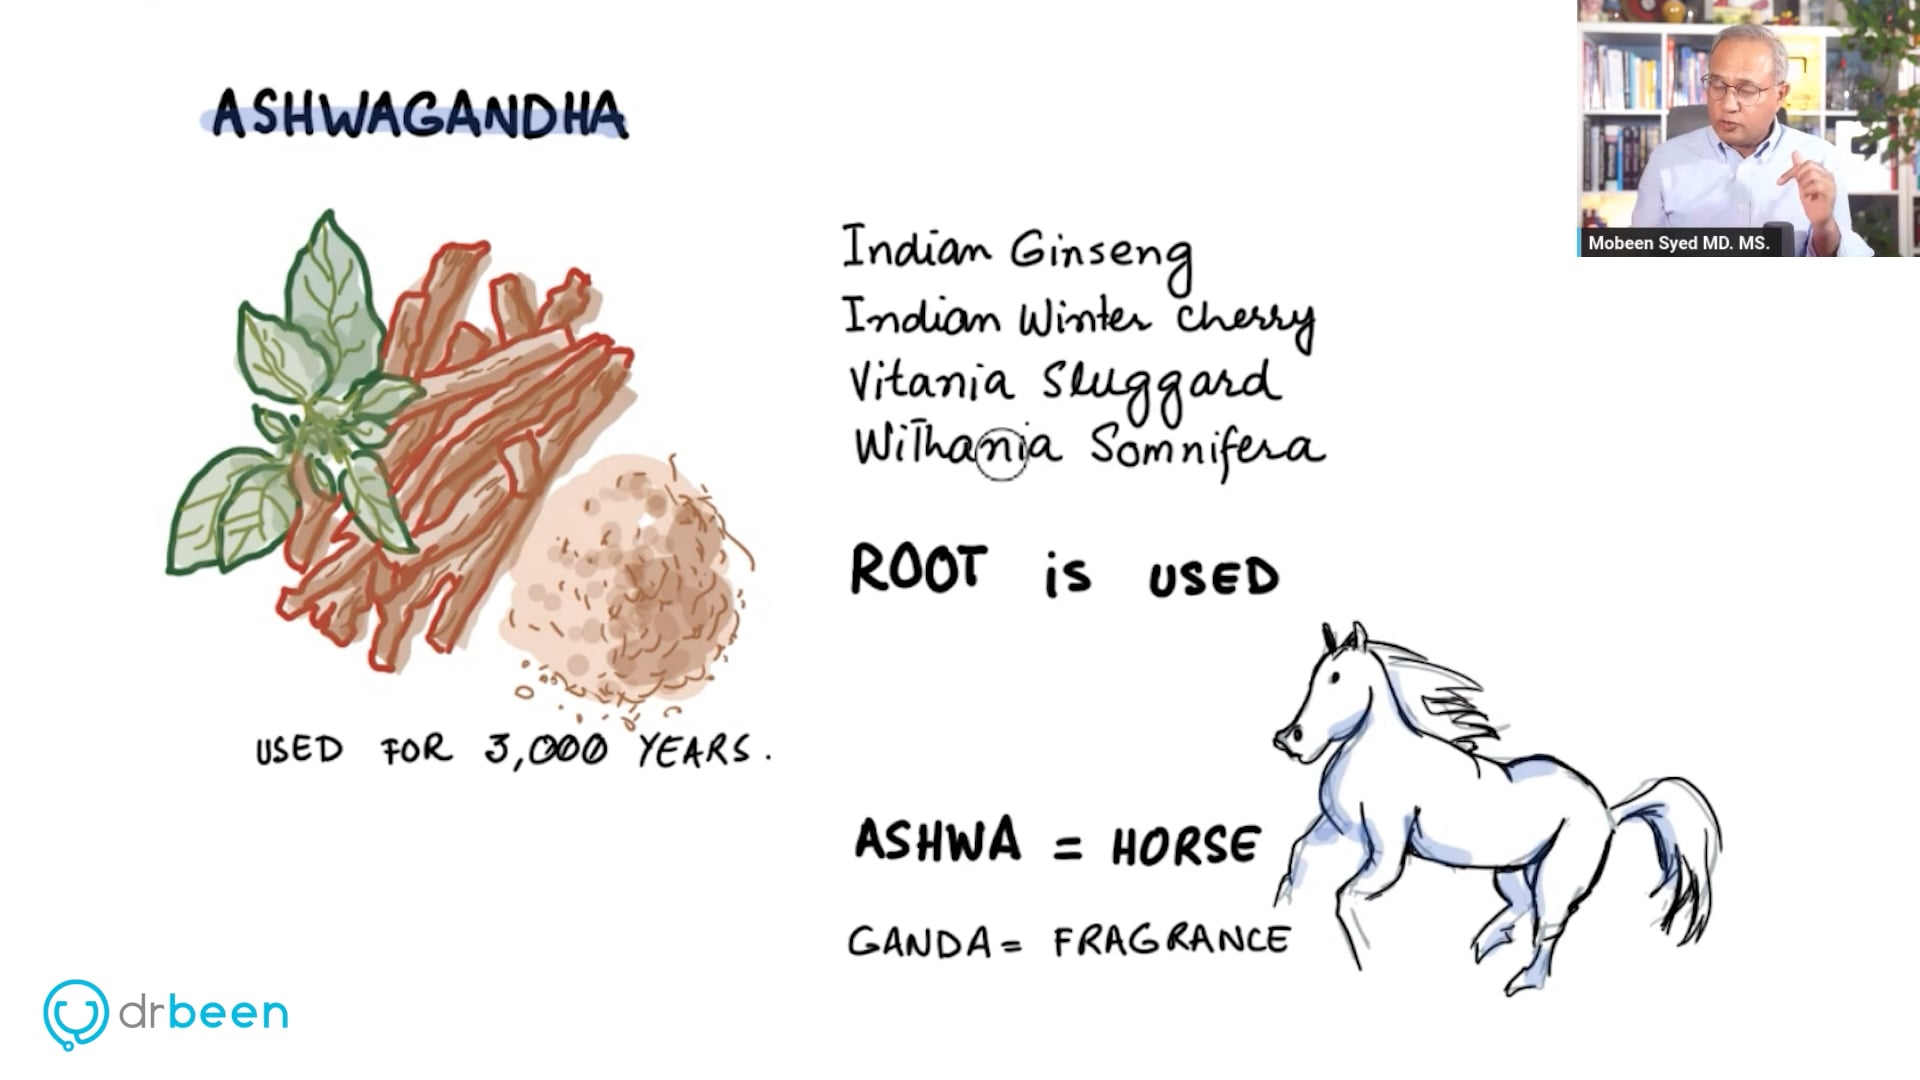 ASHWAGANDHA
Indian Ginseng
Indian Winter cherry
Vitania Sluggard
Withania Somnifera
ROOT is USED
USED FOR 3,000 YEARS.
ASHWA = HORSE
GANDA = FRAGRANCE
Mobeen Syed MD. MS.
drbeen